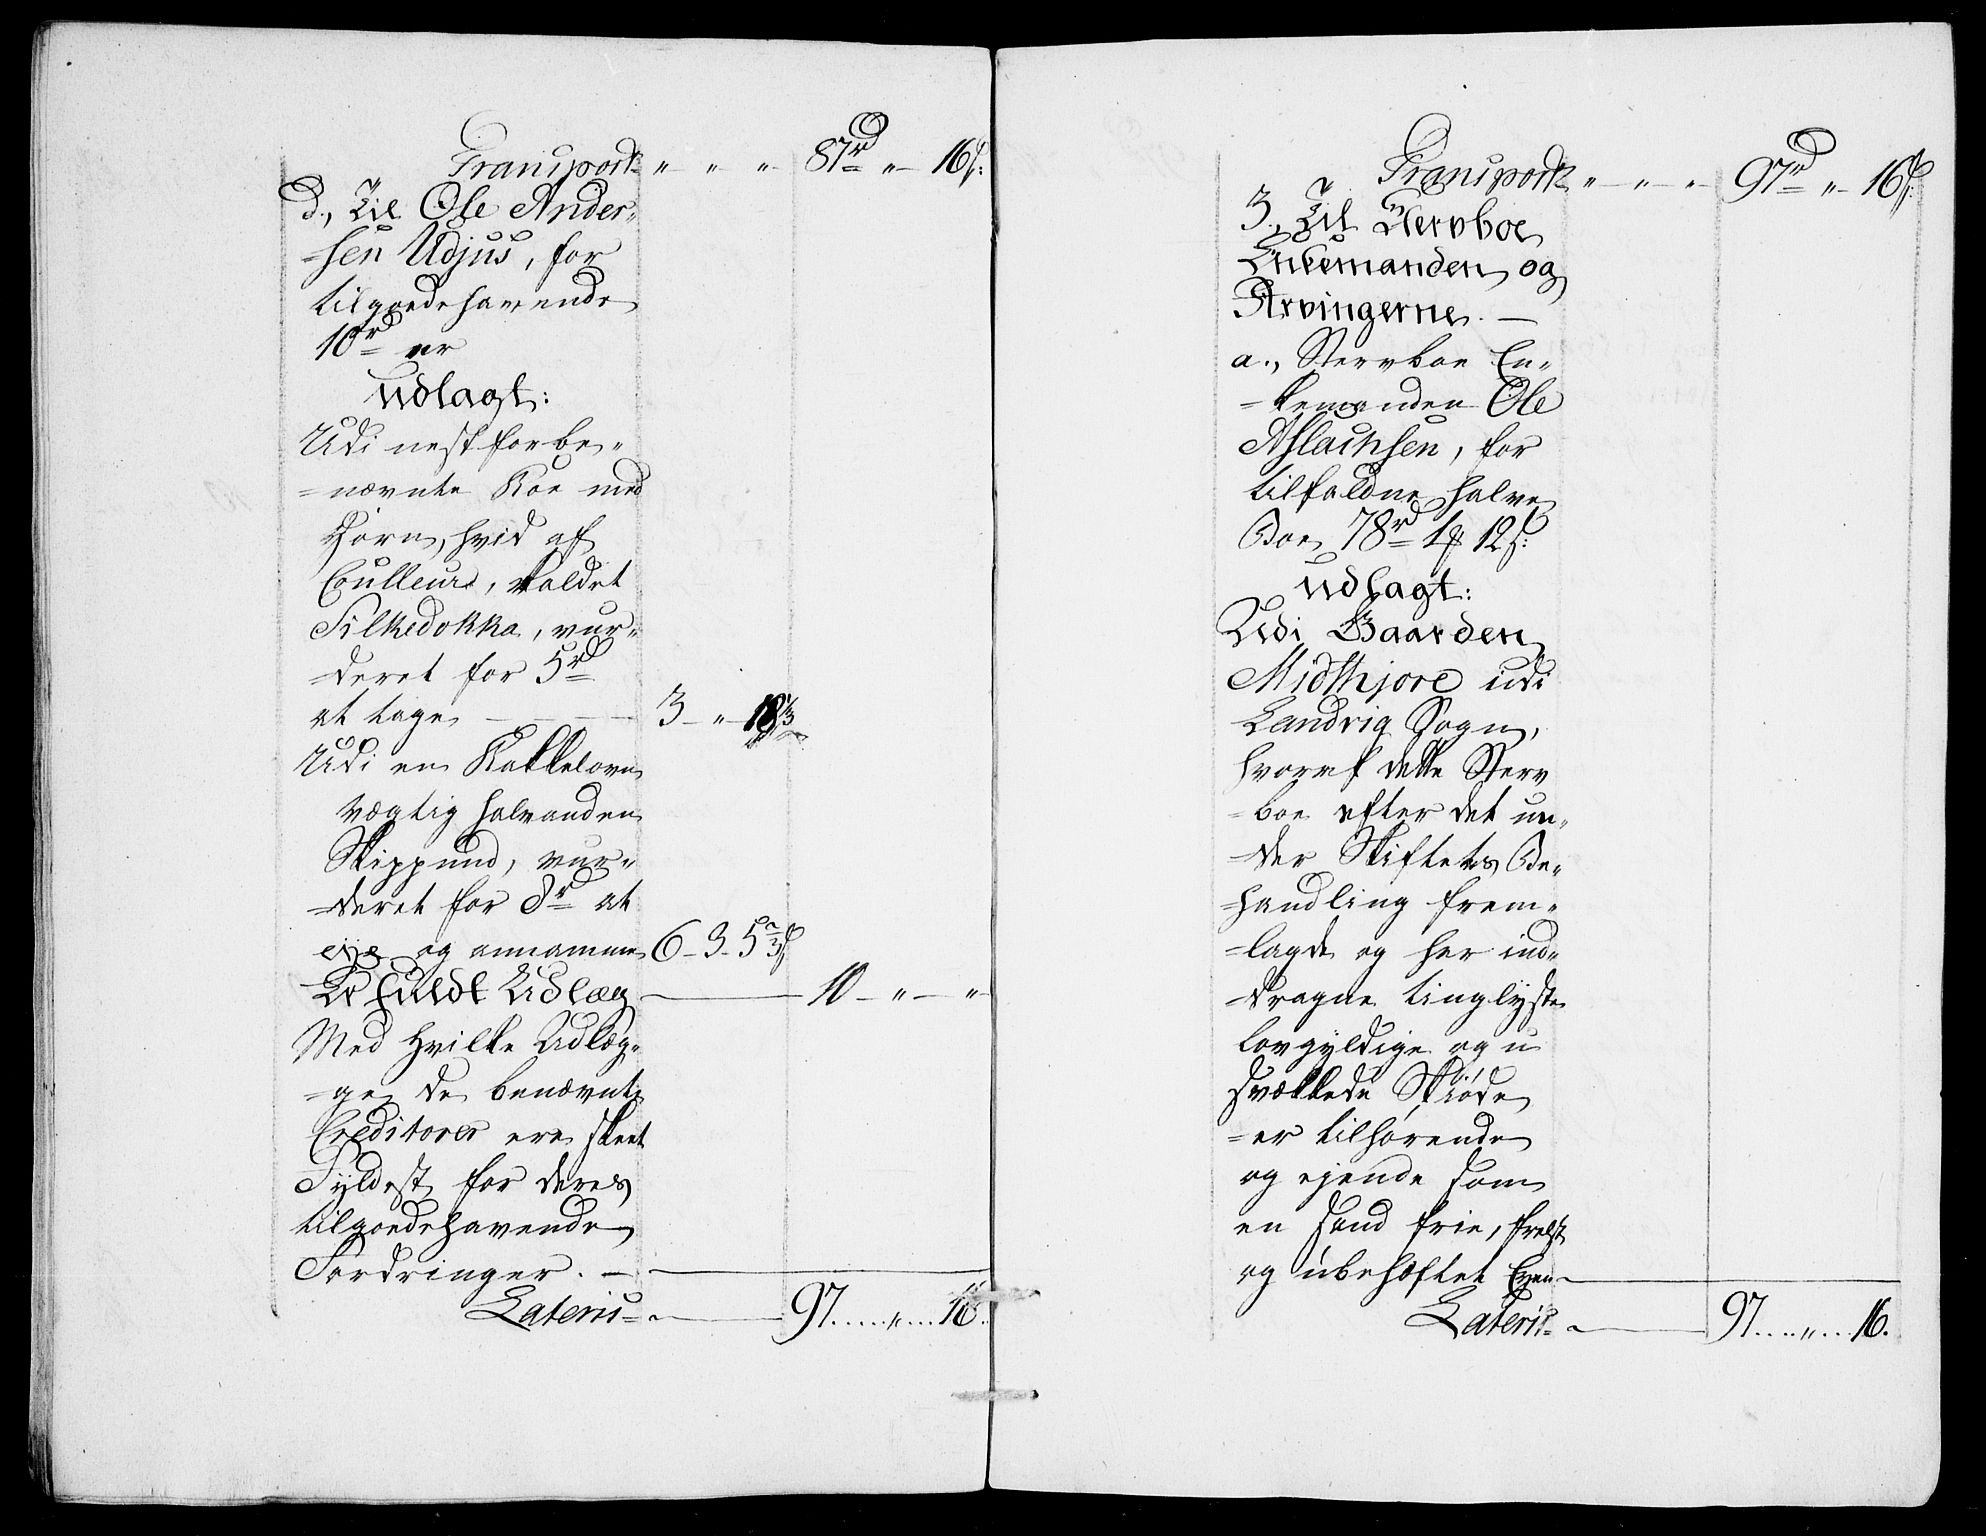 Transport „ „ „ 87rd „ 16s:
d., Til Ole Ander„
=sen Udjus, for
tilgoedehavende
10rd er
udlagt:
Udi nestforbe„
=nævnte Koe med
Horn, hvid af
Coulleur, kaldet
Silkedokka, vur„
=deret for 5rd
at tage — 3 „ 18 1/3
Udi en Kakkelovn
vægtig halvanden
Skippund, vur„
=deret for 8rd at
eje og annamme 6 - 3 - 5 2/3s
Er fuldt Udlæg — 10 — „ — „
Med hvilke Udlæg„
=ge de benævnte
Creditorer ere skeet
Fyldest for deres
tilgoedehavende
Fordringer. —
Lateris — 97 .... „ .... 16.
Transport „ — „ — „ 97rd „ 16s:
3., Til Stervboe
Enkemanden og
Arvingerne. —
a., Stervboe En„
=kemanden Ole
Aslachsen, for
tilfaldne halve
Boe 78rd 1 12s:
udlagt:
Udi Gaarden
Midthjore udi
Landvig Sogn,
hvoraf dette Sterv
=boe efter det un„
=der Skiftets Be„
=handling frem„
=lagde og her ind„
=dragne tinglyste
lovgyldige og u
svækkede Skiøde
=er tilhørende
og ejende som
en sand frie, frelst
og ubehæftet Eyen
Lateris — 97 .... „ .... 16.